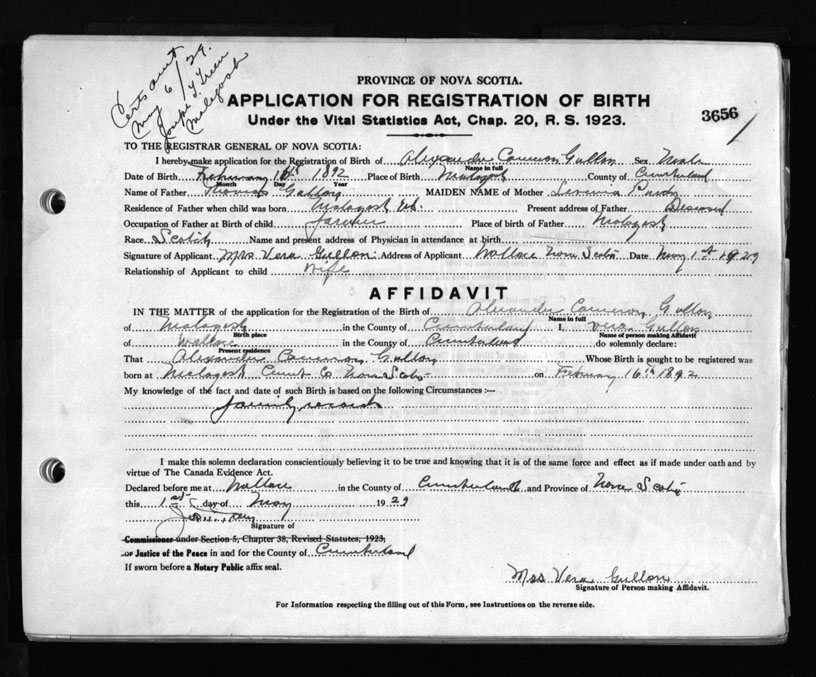 Cert sent
May 6/29.
Malagash
PROVINCE OF NOVA SCOTIA.
APPLICATION FOR REGISTRATION OF BIRTH
3656
Under the Vital Statistics Act, Chap. 20, R. S. 1923.
TO THE REGISTRAR GENERAL OF NOVA SCOTIA:
I hereby make application for the Registration of Birth of Alexander Cameron Gullon Sex Male
Name in full
Date of Birth February 16th 1892 Place of Birth Malagash County of Cumberland
Month Day Year
Name of Father Thomas Gullon MAIDEN NAME of Mother Purdy
Residence of Father when child was born Malagash Present address of Father Deceased
Occupation of Father at Birth of child farmer Place of birth of Father Malagash
Race Scotch Name and present address of Physician in attendance at birth
Signature of Applicant Mrs Vera Gullon Address of Applicant Wallace Nova Scotia Date May 1st 1929
Relationship of Applicant to child Wife
AFFIDAVIT
IN THE MATTER of the application for the Registration of the Birth of Alexander Cameron Gullon
Name in full
of Malagash in the County of Cumberland I, Vera Gullon
Birth place Name of person making Affidavit
of Wallace in the County of Cumberland do solemnly declare:
Present residence
That Alexander Cameron Gullon Whose Birth is sought to be registered was
born at Malagash Cumb Co Nova Scotia on February 16th 1892
My knowledge of the fact and date of such Birth is based on the following Circumstances :—
family records
I make this solemn declaration conscientiously believing it to be true and knowing that it is of the same force and effect as if made under oath and by
virtue of The Canada Evidence Act.
Declared before me at Wallace in the County of Cumberland and Province of Nova Scotia
this 1st day of May 1929
Signature of
Commissioner under Section 5, Chapter 38, Revised Statutes, 1923,
or Justice of the Peace in and for the County of Cumberland
If sworn before a Notary Public affix seal.
Mrs Vera Gullon
Signature of Person making Affidavit.
For Information respecting the filling out of this Form, see Instructions on the reverse side.